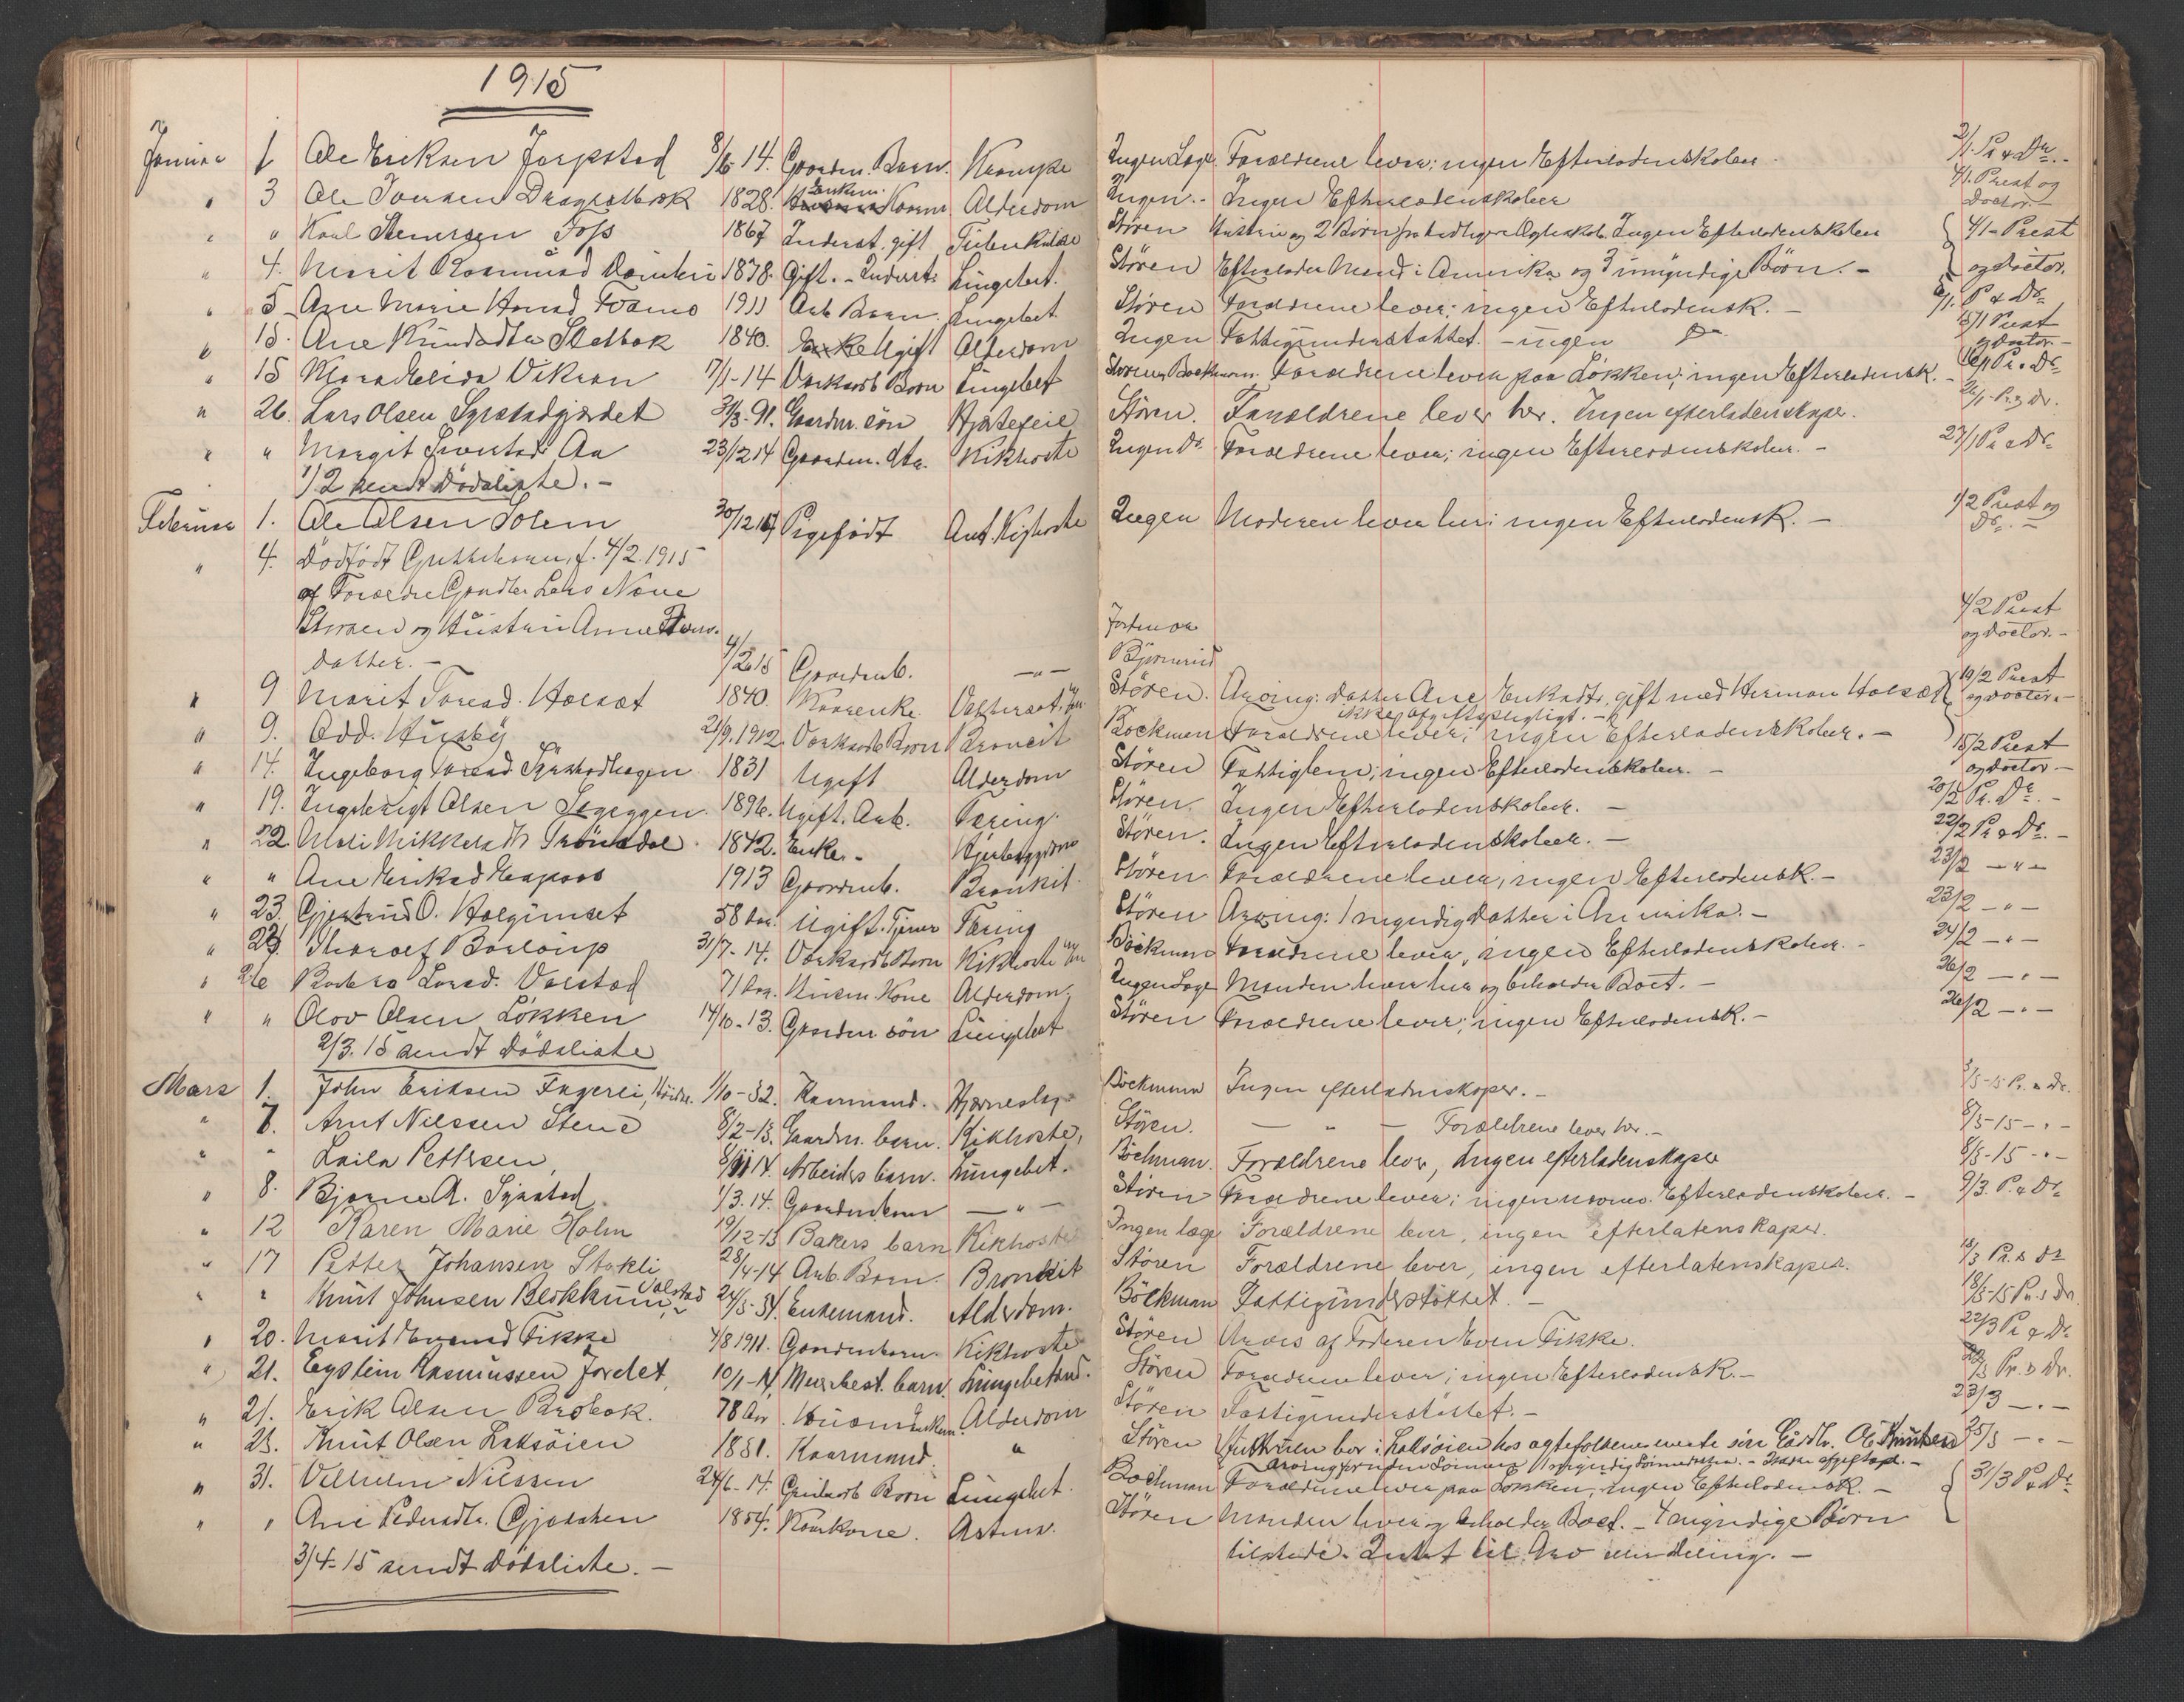 1915
Januar 1 Ole Eriksen Jerpstad 8/6-14. Gaardm. Barn. Krampe Ingen Læge Forældrene lever; ingen Efterladenskaber. 2/1. Pr & Dr.
" 3 Ole Joensen Dragset 1828. Enkem. Kaarm. Alderdom Ingen.- Ingen Efterladenskaber 4/1. Prest og Doctor.-
" " Karl Stenersen Foss 1867 Inderst, gift Tuberkulose Støren Hustru og 2 Børn fra tidligere Ægteskab. Ingen Efterladenskaber 4/1- Prest
" 4. Marit Rasmusd 1878. Gift.- Inderst. Lungebet. Støren Efterlader Mand i Amerika og 3 umyndige Børn.- og Doctor.
" 5 Ane Marie 1911 Arb Barn. Lungebet Støren Forældrene lever; ingen Efterladensk.- 6/1. P & Dr
" 15. Ane Knudsdtr Stelbak 1840. Ugift Alderdom Ingen Fattigunderstøttet. - ingen Do 15/1 Prest og Doctor.-
" 15 Mara Melida Vikran 7/1-14 Barn Lungebet Støren & Bøckman. Forældrene lever paa Løkken; ingen Efterladensk.- 16/1 Pr. & Dr
" 26. Lars Olsen Syrstadgjærdet 3/3-91. Gaardm. søn Hjertefeil Støren. Forældrene lever her. Ingen efterladenskaper. 26/1-Pr og Dr.
" " Margit Sivertsd. Aa 23/12 14 Gaardm. dtr. Kikhoste Ingen Dr. Forældrene lever; ingen Efterladenskaber.- 27/1 Pr & Dr
1/2 sendt Dødsliste.-
Februar 1. Ole Olsen Solem 30/12 14 Pigefødt Ant. Kighoste Ingen Moderen lever her; ingen Efterladensk.- 1/2 Prest og Dr.-
" 4. Dødfødt Guttebarn, f. 4/2.1915
af Forældre Gaardbr Lars
og Hustru Anne
datter.- 4/2 15 Gaardmb. -"- Jordmor Bjørnerud 4/2 Prest og Doctor.-
" 9 Marit Toresd. Holsæt 1840. Kaarenke Støren. Arving: datter Ane gift med Herman Holsæt 10/2 Prest og Doctor.-
ikke afgiftspligtigt.-
" 9. Odd. Husby 21/9.1912. Barn Bronkit Bøckman Forældrene lever; ingen Efterladenskaber.-
" 14. Ingeborg Toresd Syrstadhagen 1831 Ugift Alderdom Støren Fattiglem; ingen Efterladenskaber.- 15/2 Prest og Doctor-
" 19. Ingebrigt Olsen 1896. Ugift. Arb. Tæring. Støren. Ingen Efterladenskaber.- 20/2 Pr. Dr.-
" 22. Mali Mikkelsdtr Grønsdal 1842. Enke.- Støren. Ingen Efterladenskaber.- 22/2 Pr & Dr.-
" " Ane Eriksd 1913 Gaardmb. Bronkit. Støren Forældrene lever, ingen Efterladensk.- 23/2 -"-
" 23. Gjertrud O. Holgimset 58 Aar. Ugift. Tjener Tæring Støren Arving: 1 myndig Datter i Amerika.- 23/2 -"-
" 23. Thoralf 31/7-14. Barn Kikhoste Bøckman Forældrene lever, ingen Efterladenskaber.- 24/2 -"-
" 26 Barbro Larsd. Valstad 71 Aar. Husm. Kone Alderdom. Ingen Læge Manden lever her og beholder Boet.- 26/2 -"-
" " Olav Olsen Løkken 14/10-13. Gaardm. søn Lungebet Støren Forældrene lever; ingen Efterladensk.- 26/2 -"-
2/3.15 sendt Dødsliste
Mars 1. John Eriksen Fagerli, 1/10-32. Kaarmand. Hjerneslag Bøckmann Ingen efterladenskaper.- Pr. & Dr.
" 7. Arnt Nilssen Stene 8/2-13. Gaardm. barn. Kikhoste, Støren. - " - Forældrene lever her.- 8/3-15 -"-
" " Laila Pettersen, 8/11 14 Arbeiders barn. Lungebet. Bøckman. Forældrene lever, Ingen efterladenskaper 8/3-15 -"-
" 8. Bjarne A. Syrstad 1/3.14. Gaardmbarn -"- Støren Forældrene lever; ingen Efterladenskaber.- 9/3. P. & Dr
" 12 Karen Marie Holm 19/12-13 Bakers barn Kikhoste Ingen læge Forældrene lever, ingen efterlatenskaper.
" 17 Petter Johansen Stokli 28/4-14 Arb. Barn. Bronkit Støren Forældrene lever, ingen efterlatenskaper. 18/3 Pr. & Dr
" " Knut Johnsen Blokkum, Valstad 24/5-31. Enkemand. Alderdom. Bøckman Fattigunderstøttet.- 18/3-15 Pr. & Dr.
" 20. Marit Evensd Fikke 4/8 1911. Gaardmbarn. Kikhoste Støren Arves af Faderen Even Fikke. 22/3 Pr & Dr
" 21. Eystein Rasmussen Jordet 10/1-14. barn. Lungebetænd. Støren Forældrene lever; ingen Efterladensk.- 22/3 Pr. & Dr.
" 21. Erik Olsen 78 Aar. Husm. Enkem. Alderdom Støren Fattigunderstøttet.- 23/3 -"-
" 23. Knut Olsen Laksøien 1831. Kaarmand. " Støren Hustruen bor i Laksøien hos ægtefolkenes eneste søn Gårdbr. Ole Knutsen 25/3 -"-
" 31. Vilhelm Nilssen 24/6-14. Barn Lungebet. Bøckman Forældrene lever paa Løkken, ingen Efterladensk.- 31/3 P & Dr
" " Ane Pedersdtr. 1854. Kaarkone. Astma. Støren Manden lever og beholder Boet.- 4 myndige Børn
3/4-15 sendt Dødsliste.- tilstede. Intet til Arv eller deling.-